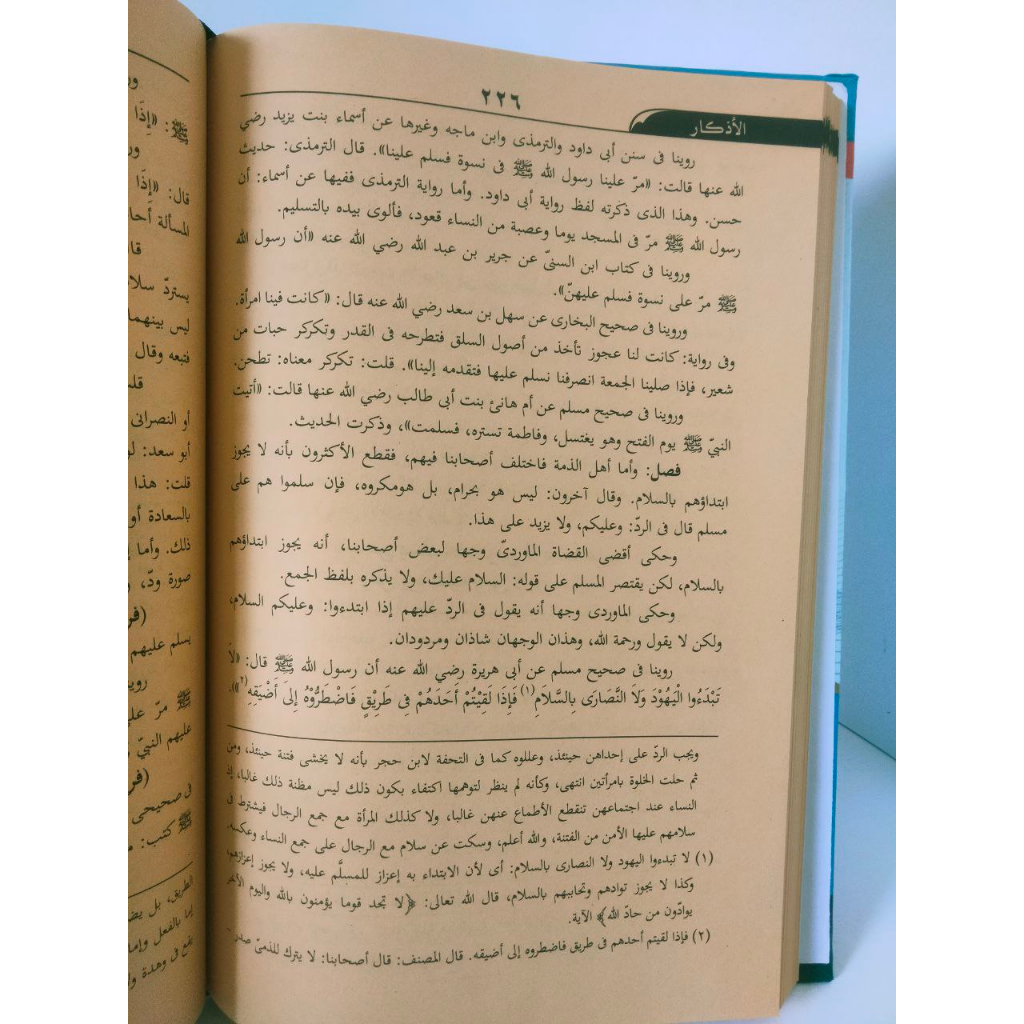 ٢٢٦
الأذكار
روينا فى سنن أبى داود والترمذى وابن ماجه وغيرها عن أسماء بنت يزيد رضي
الله عنها قالت: «مرّ علينا رسول الله ﷺ فى نسوة فسلم علينا». قال الترمذى: حديث
حسن. وهذا الذى ذكرته لفظ رواية أبى داود. وأما رواية الترمذى ففيها عن أسماء: أن
رسول الله ﷺ مرّ فى المسجد يوما وعصبة من النساء قعود، فألوى بيده بالتسليم.
وروينا فى كتاب ابن السنىّ عن جرير بن عبد الله رضي الله عنه «أن رسول الله
ﷺ مرّ على نسوة فسلم عليهنّ».
وروينا فى صحيح البخارى عن سهل بن سعد رضي الله عنه قال: «كانت فينا امرأة.
وفى رواية: كانت لنا عجوز تأخذ من أصول السلق فتطرحه فى القدر وتكركر حبات من
شعير، فإذا صلينا الجمعة انصرفنا نسلم عليها فتقدمه إلينا». قلت: تكركر معناه: تطحن.
وروينا فى صحيح مسلم عن أم هانئ بنت أبى طالب رضي الله عنها قالت: «أتيت
النبيّ ﷺ يوم الفتح وهو يغتسل، وفاطمة تستره، فسلمت»، وذكرت الحديث.
فصل: وأما أهل الذمة فاختلف أصحابنا فيهم، فقطع الأكثرون بأنه لا يجوز
ابتداؤهم بالسلام. وقال آخرون: ليس هو بحرام، بل هومكروه، فإن سلموا هم على
مسلم قال فى الردّ: وعليكم، ولا يزيد على هذا.
وحكى أقضى القضاة الماوردىّ وجها لبعض أصحابنا، أنه يجوز ابتداؤهم
بالسلام، لكن يقتصر المسلم على قوله: السلام عليك، ولا يذكره بلفظ الجمع.
وحكى الماوردى وجها أنه يقول فى الردّ عليهم إذا ابتدءوا: وعليكم السلام،
ولكن لا يقول ورحمة الله، وهذان الوجهان شاذان ومردودان.
روينا فى صحيح مسلم عن أبى هريرة رضي الله عنه أن رسول الله ﷺ قال: «لَا
تَبْدَءُوا الْيَهُوْدَ وَلاَ النَّصَارَى بِالسَّلاَمِ(١) فَإِذَا لَقِيْتُمْ أَحَدَهُمْ فِي طَرِيْقٍ فَاضْطَرُّوْهُ إِلىَ أَضْيَقِهِ(٢)».
ويجب الردّ على إحداهن حينئذ، وعللوه كما فى التحفة لابن حجر بأنه لا يخشى فتنة حينئذ، ومن
ثم حلت الخلوة بامرأتين انتهى، وكأنه لم ينظر لتوهمها اكتفاء بكون ذلك ليس مظنة ذلك غالبا، إذ
النساء عند اجتماعهن تنقطع الأطماع عنهن غالبا، ولا كذلك المرأة مع جمع الرجال فيشترط فى
سلامهم عليها الأمن من الفتنة، والله أعلم، وسكت عن سلام مع الرجال على جمع النساء وعكسه.
(١) لا تبدءوا اليهود ولا النصارى بالسلام: أى لأن الابتداء به إعزاز للمسلَّم عليه، ولا يجوز إعزازهم،
وكذا لا يجوز توادهم وتحاببهم بالسلام، قال الله تعالى: ﴿لا تجد قوما يؤمنون بالله واليوم الآخر
يوادّون من حادّ الله﴾ الآية.
(٢) فإذا لقيتم أحدهم فى طريق فاضطروه إلى أضيقه. قال المصنف: قال أصحابنا: لا يترك للذمىّ صدر -
ﷺ: «إِذَا
قال: «إِذَا
المسألة أحا
يستردّ سلا
ليس بينهما
فتبعه وقال
أو النصرانى
أبو سعد: لو
قلت: هذا
بالسعادة أو
ذلك. وأما
صورة ودّ،
يسلم عليهم
روينا
ﷺ مرّ
عليهم النبيّ
فى صحيحى
ﷺ كتب:
الطريق، بل